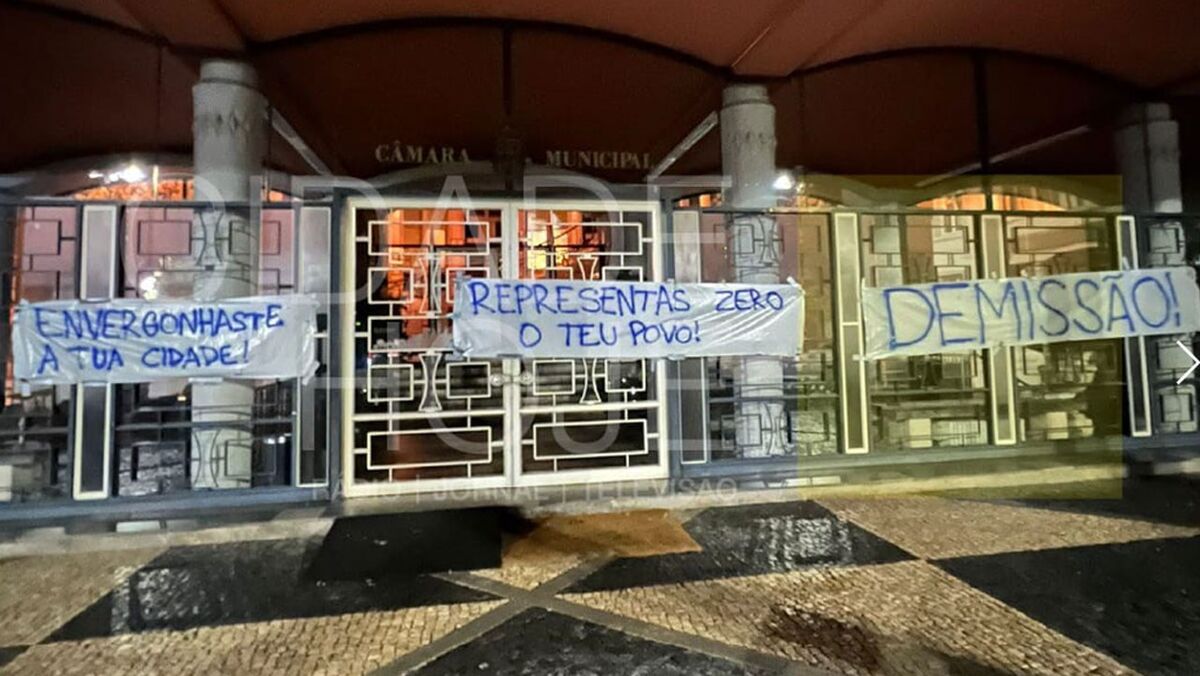 CÂMARA MUNICIPAL
ENVERGONHASTE
A TUA CIDADE!
REPRESENTAS ZERO
O TEU POVO!
DEMISSÃO!
CIDADE
HOJE
RÁDIO | JORNAL | TELEVISÃO